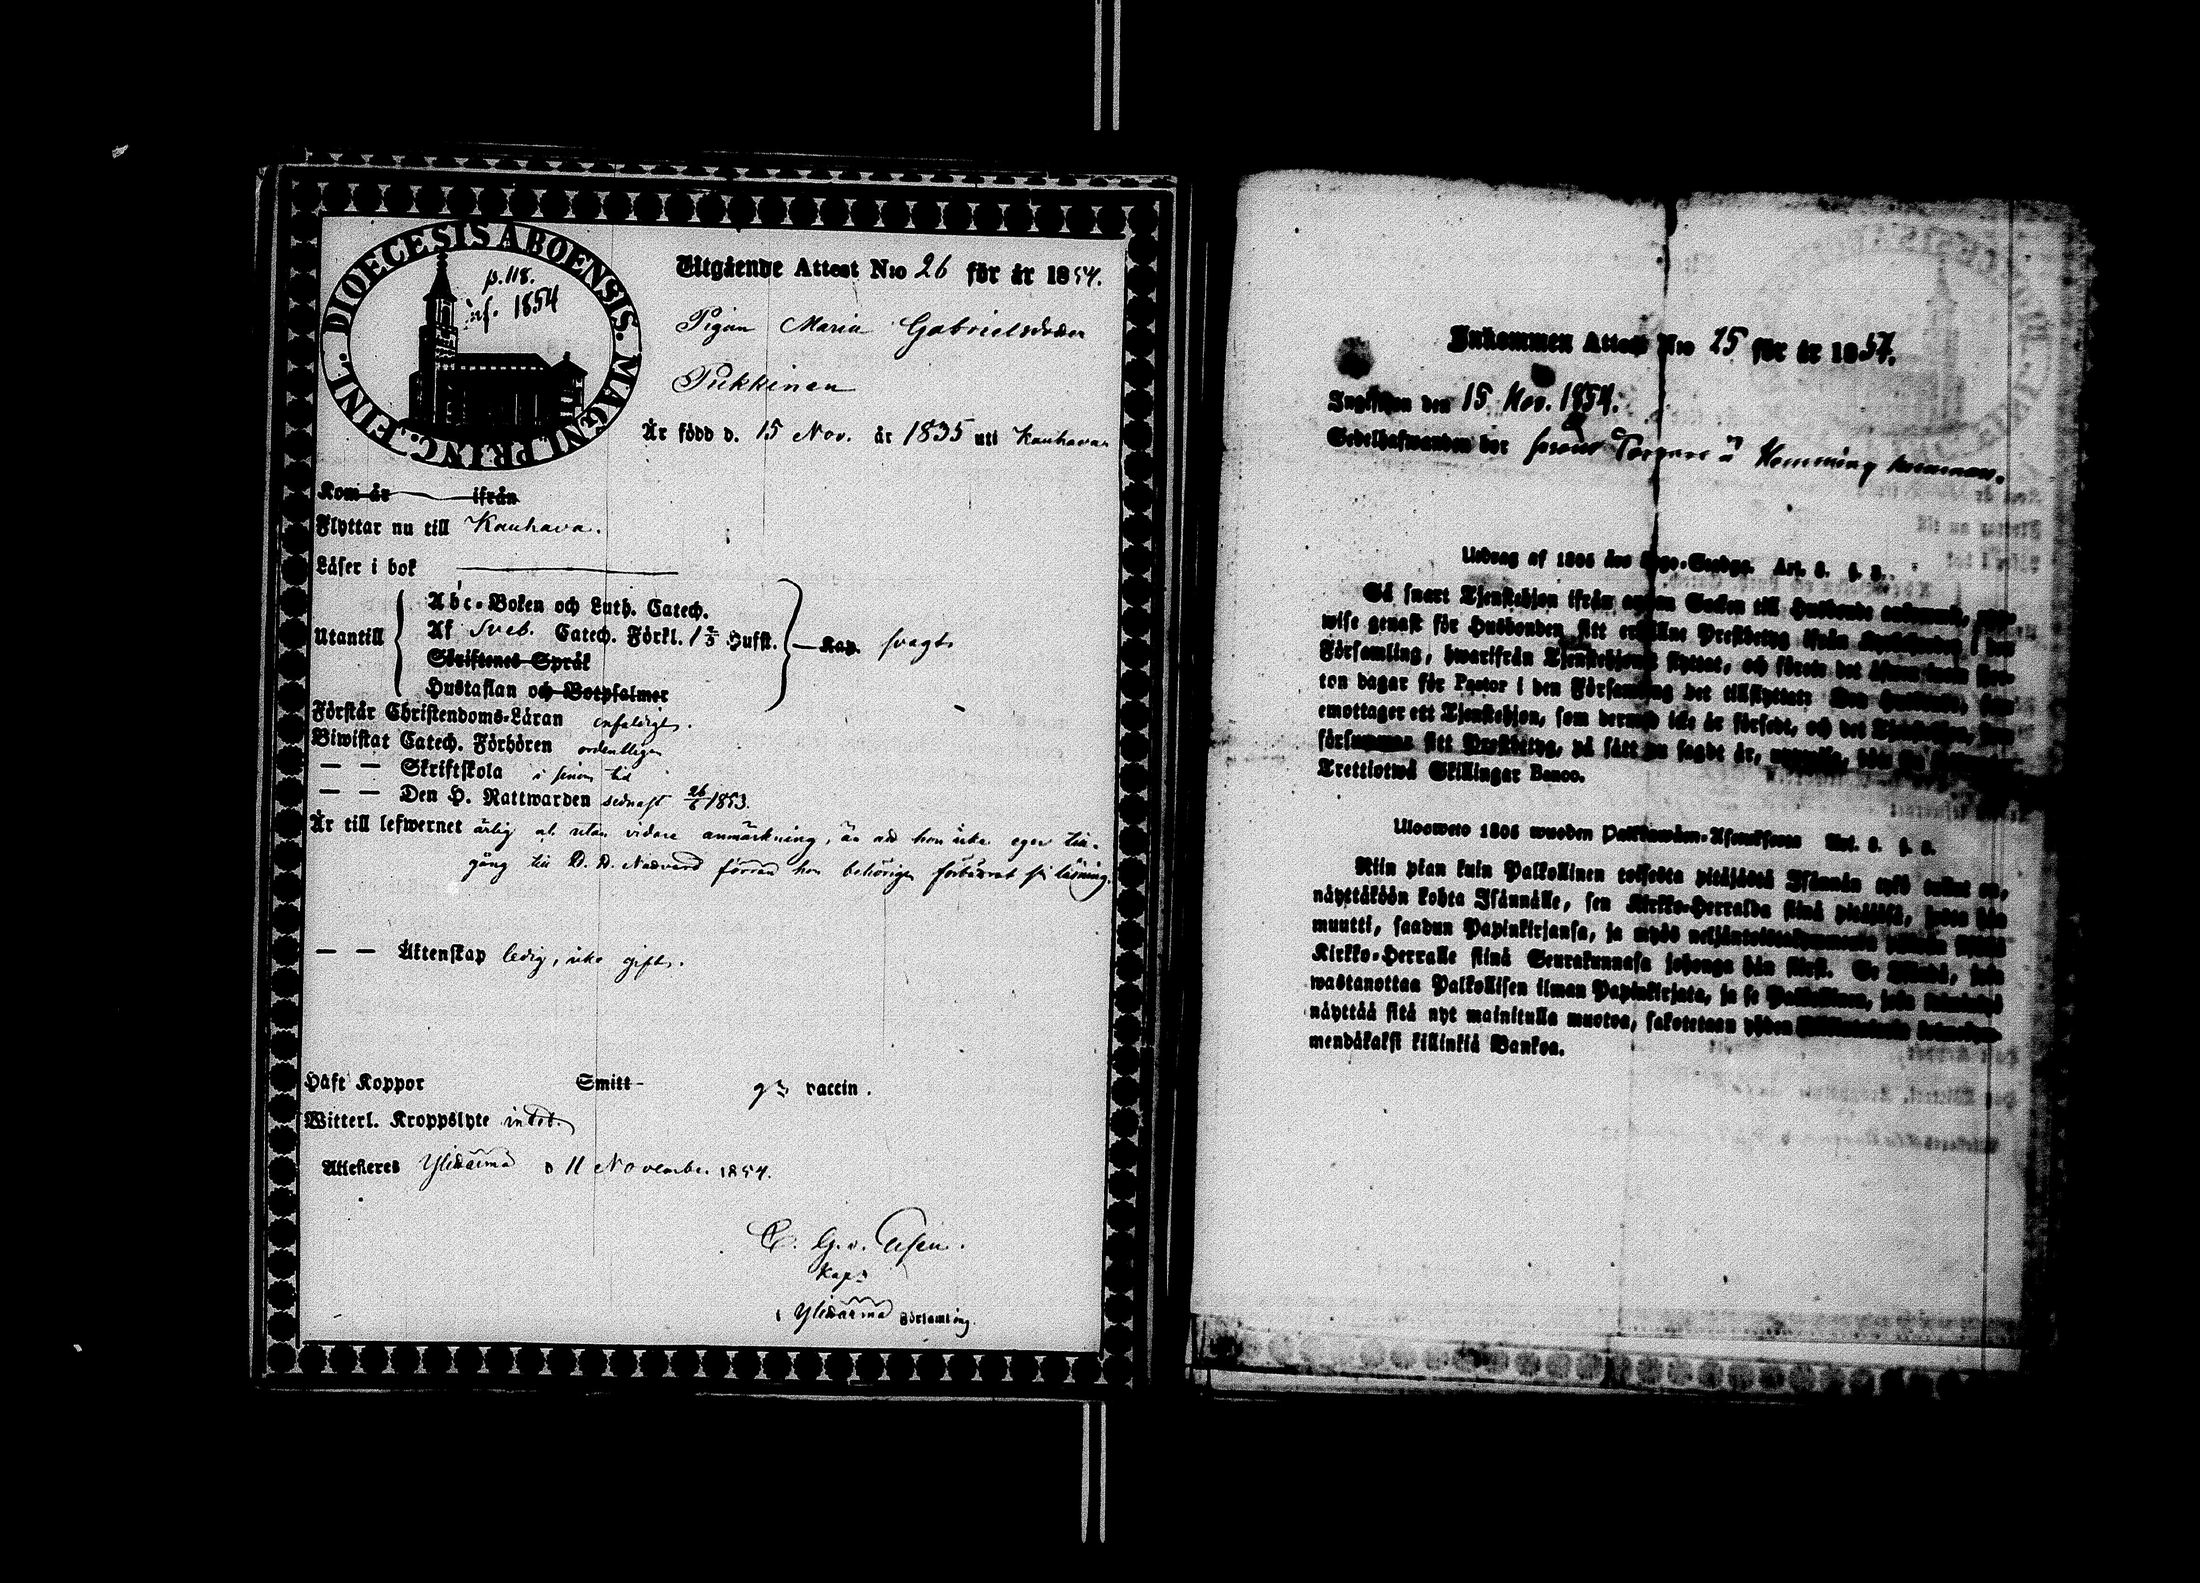 DIOECESIS ABOENSIS. MAGNI PRINC. FINL.
p. 118.
inf. 1854
Utgående Attest N:o 26 för år 1854.
Pigan Maria Gabrielsdotter
Pukkinen
Är född d. 15 Nov. år 1835 uti Kauhava
Kom år ifrån
Flyttar nu till Kauhava.
Läser i bok
Utantill
Abc-Boken och Luth. Catech.
Af Sveb. Catech. Förkl. 1 2/5 Hufst.
Skriftenes Språk
Hustaflan och Botpsalmer
Kap. svagt
Förstår Christendoms-Läran enfaldigt.
Biwistat Catech. Förhören ordentligen
— — Skriftskola i sinom tid
— — Den H. Nattwarden sednast 26/6 1853.
Är till lefwernet ärlig och utan vidare anmärkning, än att hon icke eger till-
gång till H. H. Nattvard förrän hon behörigen förbättrat sin läsning.
— — Äktenskap ledig, icke gift.
Haft Koppor Smitt- vaccin.
Witterl. Kroppslyte intet.
Attesteres Ylihärmä d 11 November 1854.
C. G. v. Essen.
Kap:n
i Ylihärmä Församling.
Inkommen Attest N:o 25 för år 1854.
Ingifwen den 15 Nov. 1854.
Sedelhafwanden bor hos Torpare å Hemming hemman.
Utdrag af 1805 års Lego-Stadga. Art. 3. §. 3.
Så snart Tjenstehjon ifrån annan Socken till Husbonde ankommit,
wise genast för Husbonden sitt erhållne Prestbetyg ifrån Kyrkoherden i den
Församling, hwarifrån Tjenstehjonet flyttat, och förete det äfwen inom fjor-
ton dagar för Pastor i den Församling det tillflyttat: Den Husbonde, som
emottager ett Tjenstehjon, som dermed icke är försedt, och det Tjenstehjon, som
försummar sitt Prestbetyg, på sätt nu sagdt är, uppwisa, böte
Trettiotwå Skillingar Banco.
Ulosweto 1805 wuoden Palkkawäen-Asetuksesta Art. 3. §. 3.
Niin pian kuin Palkollinen toisesta pitäjästä Isännän tykö tullut on,
näyttäköön kohta Isännälle, sen Kirkko-Herralda siinä pitäjäsä, josta hän
muutti, saadun Papinkirjansa, ja myös neljäntoistakymmenen päiwän sisällä
Kirkko-Herralle siinä Seurakunnasa johonga hän siirsi. Se Isäntä, joka
wastanottaa Palkollisen ilman Papinkirjata, ja se Palkollinen, joka
näyttää sitä nyt mainitulla muotoa, sakotetaan yhden
mendäkaksi killinkiä Bankoa.